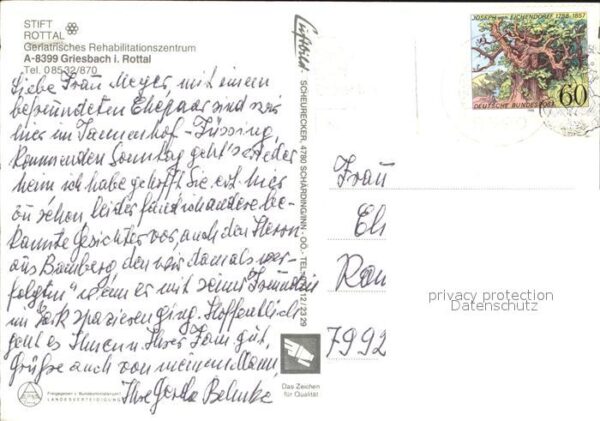 STIFT
ROTTAL
Geriatrisches Rehabilitationszentrum
A-8399 Griesbach i. Rottal
Tel. 08532/870
Liebe Frau Meyer, mit einem
befreundeten Ehepaar sind wir
hier im Tannenhof - Füssing,
kommenden Sonntag geht's wieder
heim ich habe gehofft Sie evt. hier
zu sehen, leider fand ich andere be-
kannte Gesichter vor, auch den Herrn
aus Bamberg, den wir damals „ver-
folgten" wenn er mit seiner Freundin
im Park spazieren ging. Hoffentlich
geht es Ihnen u. Ihrer Fam. gut,
Grüße auch von meinem Mann,
Ihre Gerda
Freigegeben v. Bundesministerium f.
LANDESVERTEIDIGUNG
Luftbild
SCHEURECKER, 4780 SCHÄRDING/INN - OÖ. - TEL.
12/23 29
Das Zeichen
für Qualität
JOSEPH von EICHENDORFF 1788-1857
DEUTSCHE BUNDESPOST
60
Frau
El
Ran
7992
privacy protection
Datenschutz